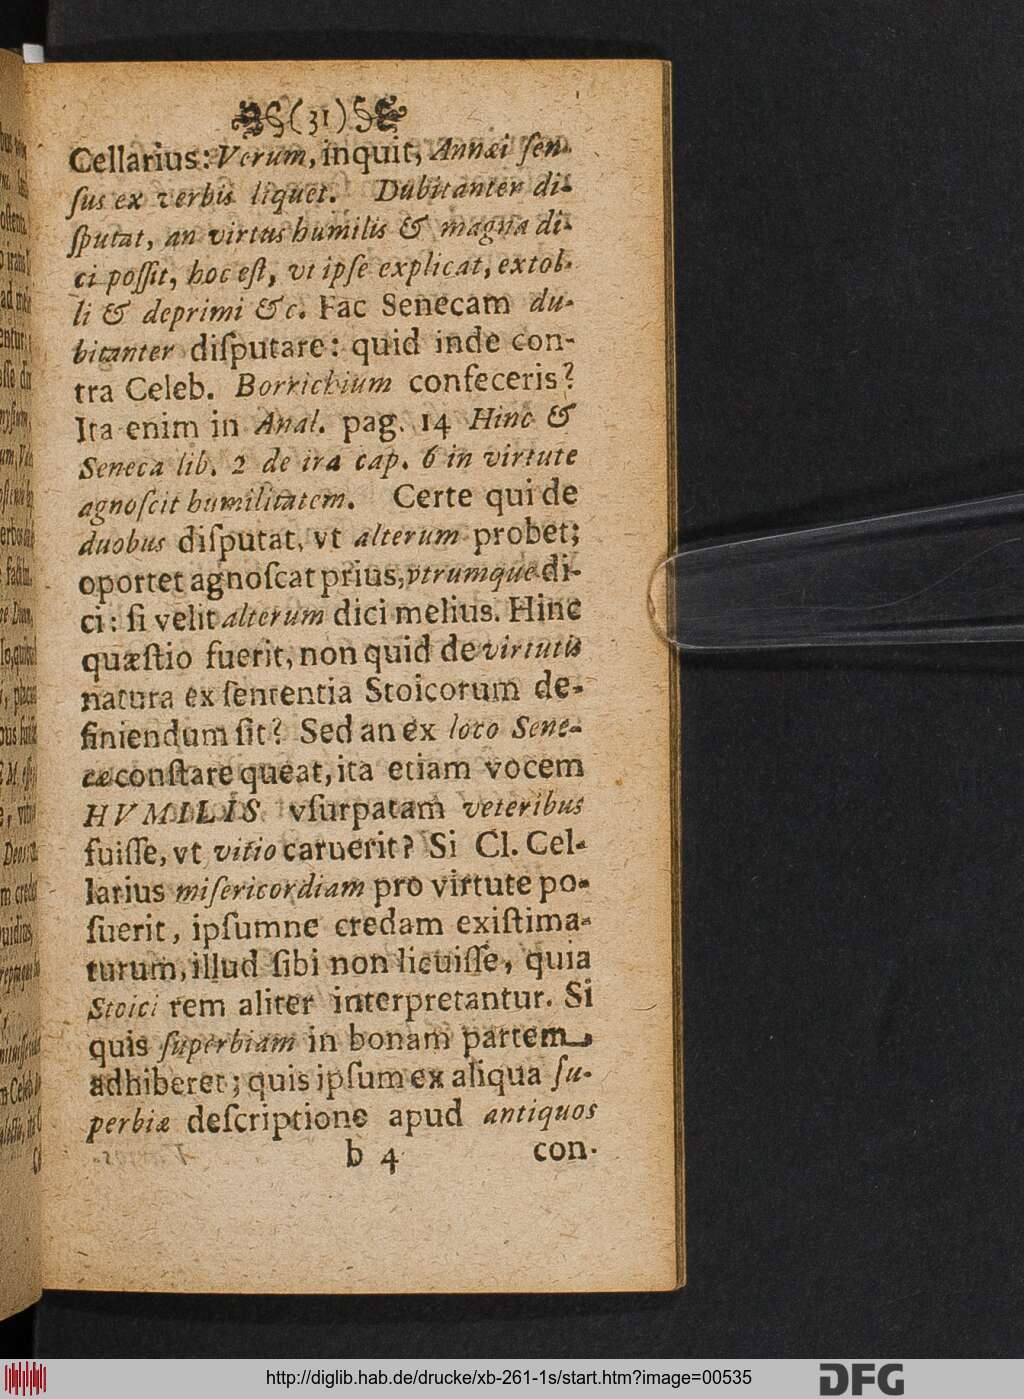 (31)
Cellarius: Verum, inquit, Annæi ſen-
ſus ex verbis liquet. Dubitanter di-
ſputat, an virtus humilis & magna di-
ci poſſit, hoc eſt, vt ipſe explicat, extol-
li & deprimi &c. Fac Senecam du-
bitanter diſputare: quid inde con-
tra Celeb. Borrichium confeceris?
Ita enim in Anal. pag. 14 Hinc &
Seneca lib. 2 de ira cap. 6 in virtute
agnoſcit humilitatem. Certe qui de
duobus diſputat, vt alterum probet;
oportet agnoſcat prius, vtrumque di-
ci: ſi velit alterum dici melius. Hinc
quæſtio fuerit, non quid de virtutis
natura ex ſententia Stoicorum de-
finiendum ſit? Sed an ex loco Sene-
cæ conſtare queat, ita etiam vocem
HVMILIS vſurpatam veteribus
fuiſſe, vt vitio caruerit? Si Cl. Cel-
larius miſericordiam pro virtute po-
ſuerit, ipſumne credam exiſtima-
turum, illud ſibi non licuiſſe, quia
Stoici rem aliter interpretantur. Si
quis ſuperbiam in bonam partem
adhiberet; quis ipſum ex aliqua ſu-
perbiæ deſcriptione apud antiquos
b 4 con-
http://diglib.hab.de/drucke/xb-261-1s/start.htm?image=00535
DFG